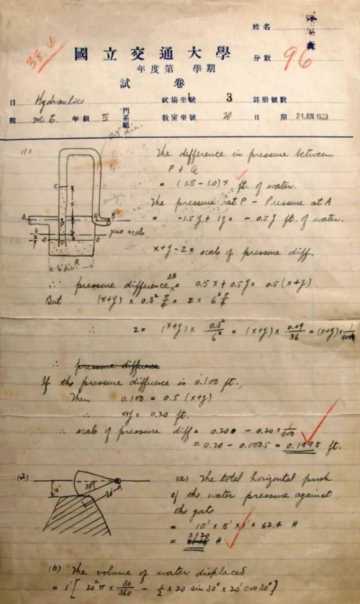 姓名
國立交通大學
年度第 學期
分數 96
試卷
目 Hydraulics 試場坐號 3
院 M.E. 年級 III 教室坐號 20 日期 21 JUN 1933
(1) The difference in pressure between
P & Q
= (1.5 - 1.0) y ft. of water.
The pressure at P - Pressure at A
= -1.5y + y = -0.5y ft. of water.
x+y-z = scale of pressure diff.
∴ pressure difference = 0.5x + 0.5y = 0.5(x+y)
But (x+y) x 0.5² π/4 = z x 6² π/4
∴ z = (x+y) x 0.5²/6² = (x+y) x 0.25/36 = (x+y) x 1/144
∴ pressure difference
If the pressure difference is 0.100 ft.,
Then 0.100 = 0.5 (x+y)
∴ x+y = 0.20 ft.
∴ scale of pressure diff. = 0.200 - 0.20 x 1/144
= 0.20 - 0.0015 = 0.1985 ft.
(2) (a) The total horizontal push
of the water pressure against
the gate
= 10' x 5' x 1' x 62.4 #
= 3120 #
(b) The volume of water displaced
= 1' [ 20² π x 30/360 - 1/2 x 20 sin 30° x 20 cos 30° ]